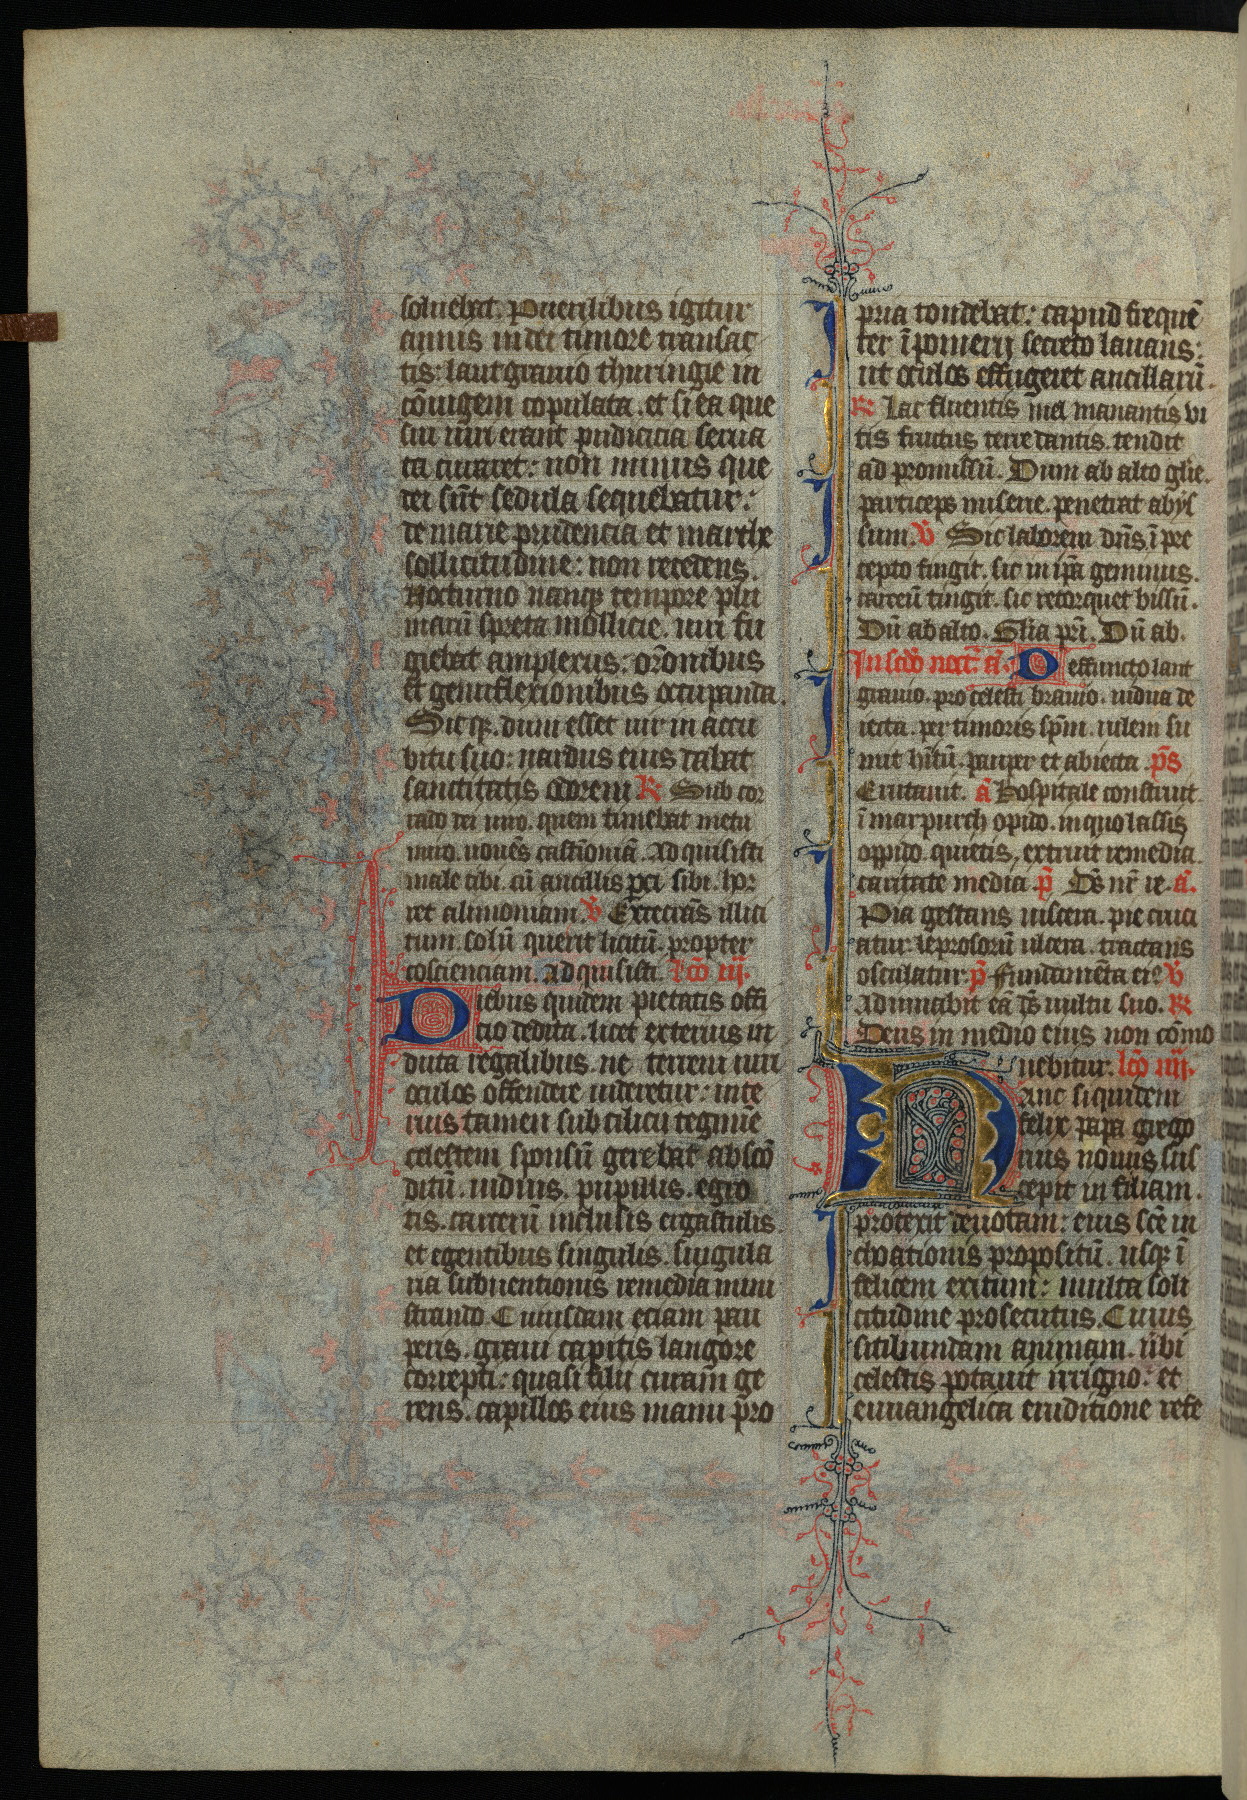 soluebat. Puerilibus igitur
annis in dei timore transac
tis: lantgrauio thuringie in
cōiugem copulata. et si ea que
sui uiri erant pudicicia serua
ta curaret: non minus que
dei sūt sedula sequebatur:
de marie prudencia et marthe
sollicitudine: non recedens.
Nocturno nanq; tempore plu
marū spreta mollicie. uiri fu
giebat amplexus: orōnibus
et genuflexionibus occupanda.
Sic iq̨. dum esset uir in accu
bitu suo: nardus eius dabat
sanctitatis odorem R Sub cor
rado dei uiro. quem timebat metu
miro. noues castimoniā. Ad quisisti
male tibi. cū ancillis pei sibi. hor
ret alimoniam. V Execrās illici
tum. solū querit licitū. propter
cōscienciam. Ad quisisti. lc̄o iij.
Diebus quidem pietatis offi
cio dedita. licet exterius in
duta regalibus. ne terreni uiri
oculos offendere uideretur: inte
rius tamen sub cilicii tegmīe
celestem sponsū gerebat abscō
ditū. uiduis. pupillis. egro
tis. carcerū inclusis ergastulis.
et egentibus singulis. singula
ria subuentionis remedia mini
strando. Cuiusdam eciam pau
peris. graui capitis langore
correpti: quasi filii curam ge
rens. capillos eius manu pro
pria tondebat: capud frequē
ter ī pomerij secreto lauans:
ut oculos effugeret ancillarū.
R Lac fluentis mel manantis vi
tis fructus terre dantis. tendit
ad promissū. Dum ab alto glīe.
particeps miserie. penetrat abys
sum. V Sic laborem dn̄s ī pre
cepto fingit. sic in ip̄a geminus.
carceū tingit. sic retorquet bissū.
Dū ab alto. Glīa pr̄i. Dū ab.
In sc̄do noct̄. a. Deffuncto lant
grauio. pro celesti brauio. uidua de
iecta. per timoris sp̄m. uilem su
mit hītū. pauper et abiecta. p̄s
Eructauit. a Hospitale construit.
ī marpurch opido. in quo lassis
oppido. quietis. extruit remedia.
caritate media p̄ Ds̄ nr̄ re. a.
Pia gestans uiscera. pie cruci
atur. leprosorū ulcera. tractans
osculatur. p̄ Fundamēta eiꝰ V
Adiuuabit eā ds̄ uultu suo. R
Deus in medio eius non cōmo
uebitur. lc̄o iiij.
Hanc siquidem
felix papa grego
rius nonus sus
cepit in filiam.
protexit deuotam: eius sc̄e in
choationis propositū. usq; ī
felicem exitum: multa soli
citudine prosecutus. Cuius
sitibundam animam. ubi
celestis potauit irriguo: et
euuangelica eruditione refe